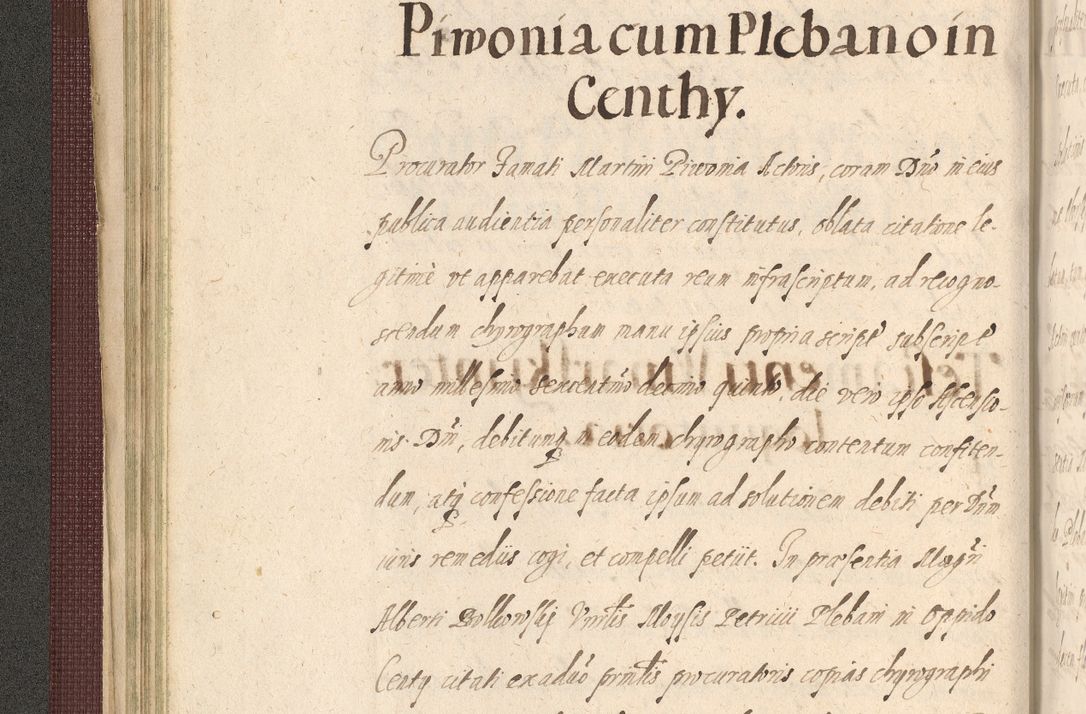 Piwonia cum Plebano in
Centhy.
Procurator Famati Martini Piwonia Actoris, coram Dno in eius
publica audientia personaliter constitutus, oblata citatione le-
gitimè vt apparebat executa reum infrascriptum, ad recogno-
scendum chyrographum manu ipsius propria script subscript
anno millesimo sexcentmo decimo quinto, die vero ipso Ascensio-
nis Dni, debitumq in eodem chyrographo contentum confiten-
dum, atq confessione facta ipsum ad solutionem debiti per Dnm
iuris remediis cogi, et compelli petiit. In praesentia Magri
Alberti Bolkowskj Vnrlis Moysis Petricii Plebani in Oppido
Centy citati ex aduo prnlis procuratoris copias chyrographi